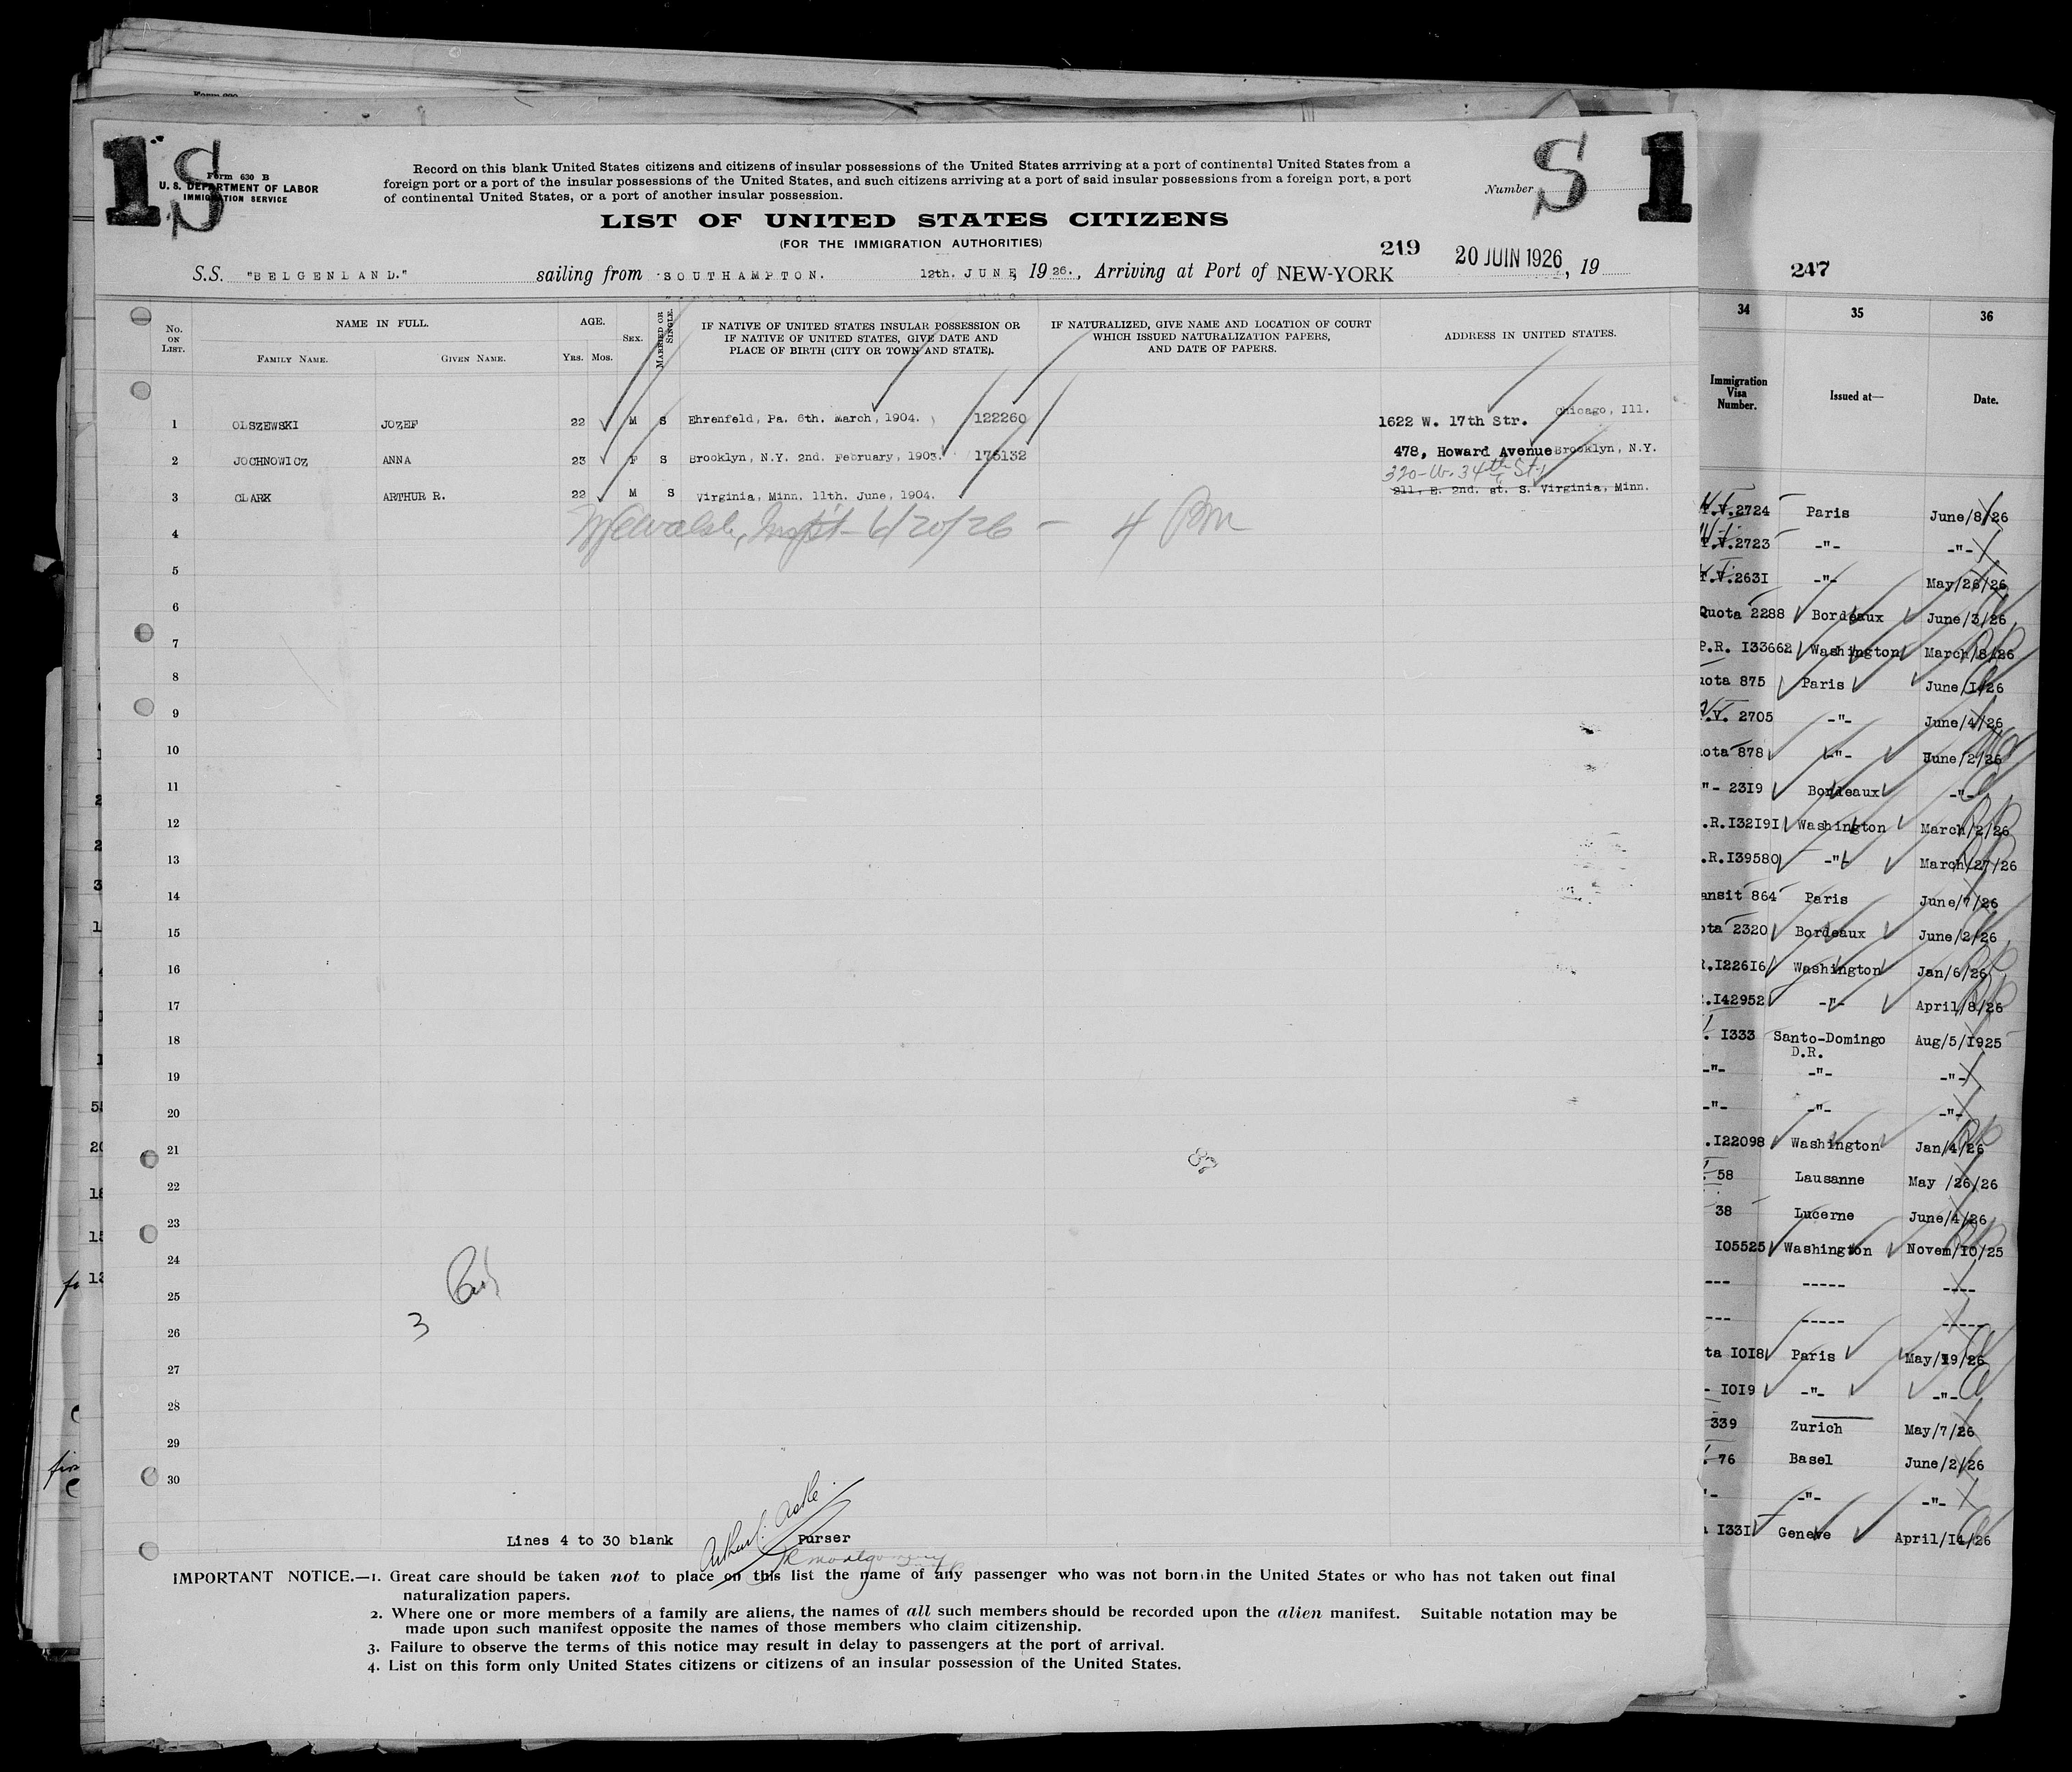 1 S
S 1
Form 630 B
U. S. DEPARTMENT OF LABOR
IMMIGRATION SERVICE
Record on this blank United States citizens and citizens of insular possessions of the United States arrriving at a port of continental United States from a
foreign port or a port of the insular possessions of the United States, and such citizens arriving at a port of said insular possessions from a foreign port, a port
of continental United States, or a port of another insular possession.
Number
LIST OF UNITED STATES CITIZENS
(FOR THE IMMIGRATION AUTHORITIES)
219
S.S. "BELGENLAND." sailing from SOUTHAMPTON. 12th. JUNE, 1926., Arriving at Port of NEW-YORK 20 JUIN 1926, 19
No. ON LIST.
NAME IN FULL.
FAMILY NAME. GIVEN NAME.
AGE.
Yrs. Mos.
SEX.
MARRIED OR SINGLE.
IF NATIVE OF UNITED STATES INSULAR POSSESSION OR
IF NATIVE OF UNITED STATES, GIVE DATE AND
PLACE OF BIRTH (CITY OR TOWN AND STATE).
IF NATURALIZED, GIVE NAME AND LOCATION OF COURT
WHICH ISSUED NATURALIZATION PAPERS,
AND DATE OF PAPERS.
ADDRESS IN UNITED STATES.
1 OLSZEWSKI JOZEF 22 M S Ehrenfeld, Pa. 6th. March, 1904. 122260 1622 W. 17th Str. Chicago, Ill.
2 JOCHNOWICZ ANNA 23 F S Brooklyn, N.Y. 2nd. February, 1903. 175132 478, Howard Avenue Brooklyn, N.Y.
320-W. 34th St.
3 CLARK ARTHUR R. 22 M S Virginia, Minn. 11th. June, 1904. 211, E. 2nd. st. S. Virginia, Minn.
4 6/20/26 - 4
5
6
7
8
9
10
11
12
13
14
15
16
17
18
19
20
21
22
23
24
25
26
27
28
29
30
87
3
Lines 4 to 30 blank Purser
IMPORTANT NOTICE.—1. Great care should be taken not to place on this list the name of any passenger who was not born in the United States or who has not taken out final
naturalization papers.
2. Where one or more members of a family are aliens, the names of all such members should be recorded upon the alien manifest. Suitable notation may be
made upon such manifest opposite the names of those members who claim citizenship.
3. Failure to observe the terms of this notice may result in delay to passengers at the port of arrival.
4. List on this form only United States citizens or citizens of an insular possession of the United States.
247
34 35 36
Immigration Visa Number. Issued at— Date.
.V.2724 Paris June/8/26
.V.2723 -"- -"-
.V.2631 -"- May/26/26
Quota 2288 Bordeaux June/3/26
P.R. I33662 Washington March/8/26
uota 875 Paris June/1/26
.V. 2705 -"- June/4/26
ota 878 -"- June/2/26
"- 23I9 Bordeaux -"-
.R.I32I9I Washington March/2/26
.R.I39580 -"- March/27/26
ansit 864 Paris June/7/26
ota 2320 Bordeaux June/2/26
R.I226I6 Washington Jan/6/26
.I42952 -"- April/8/26
I333 Santo-Domingo Aug/5/I925
D.R.
-"- -"- -"-
-"- -"- -"-
.I22098 Washington Jan/4/26
58 Lausanne May /26/26
38 Lucerne June/4/26
I05525 Washington Novem/10/25
--- ----- ----
--- ----- -----
ta I0I8 Paris May/19/26
- I0I9 -"- -"-
339 Zurich May/7/26
76 Basel June/2/26
"- -"- -"-
I33I Geneve April/14/26